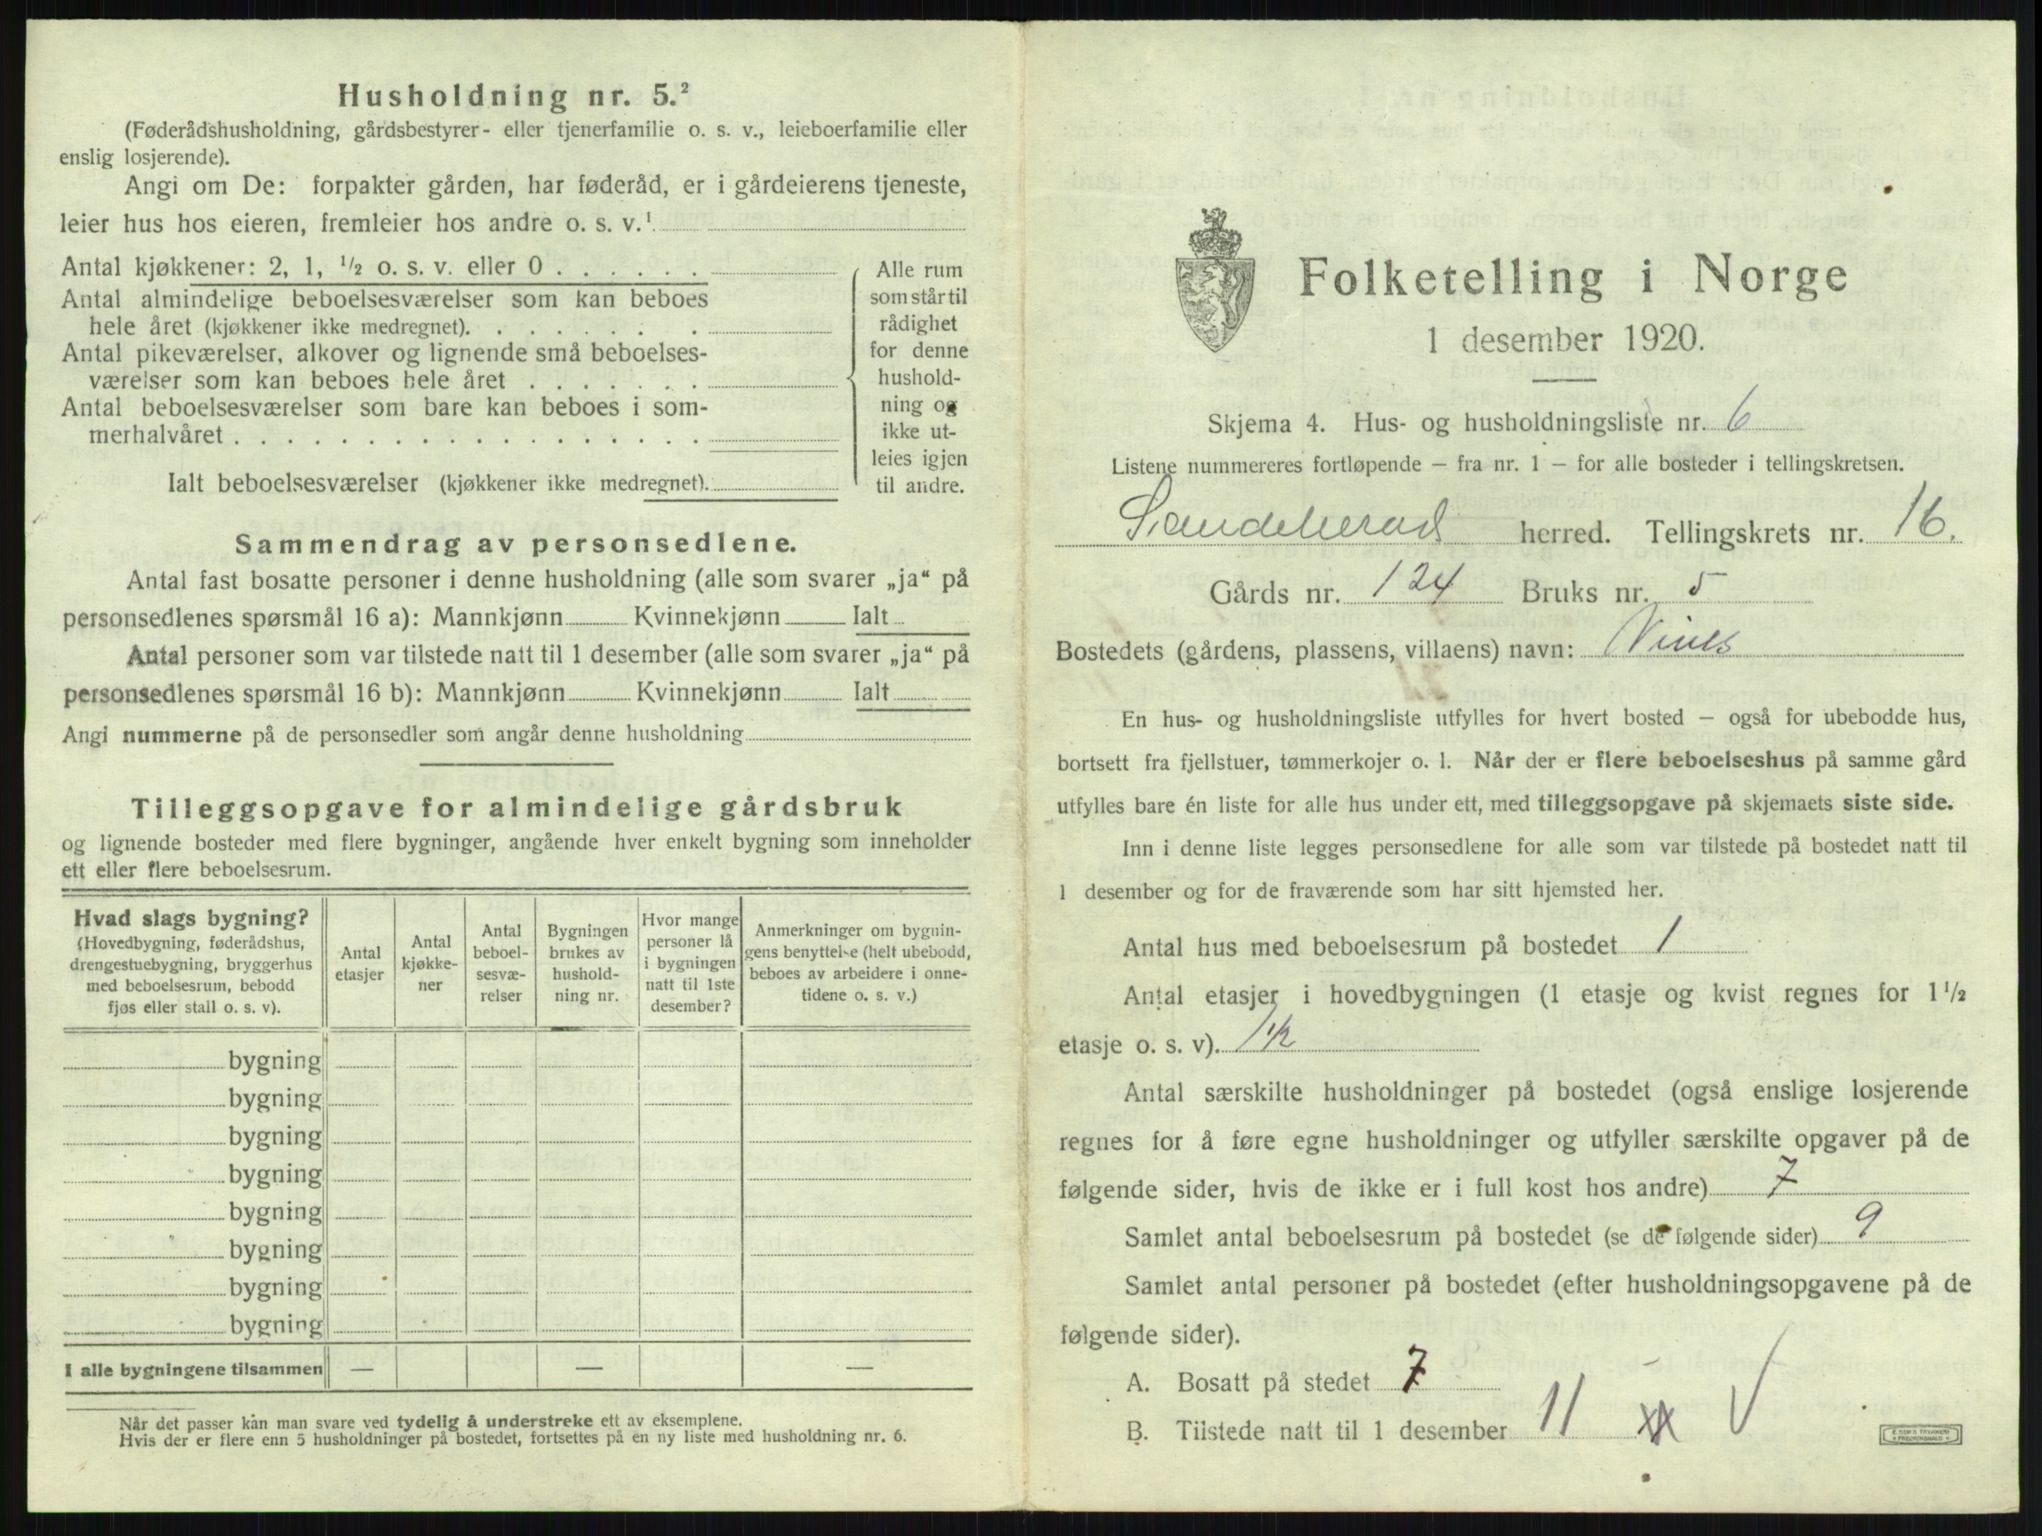 Husholdning nr. 5.²
(Føderådshusholdning, gårdsbestyrer- eller tjenerfamilie o. s. v., leieboerfamilie eller
enslig losjerende).
Angi om De: forpakter gården, har føderåd, er i gårdeierens tjeneste,
leier hus hos eieren, fremleier hos andre o. s. v.¹
Antal kjøkkener: 2, 1, ½ o. s. v. eller 0 . . . . . .
Antal almindelige beboelsesværelser som kan beboes
hele året (kjøkkener ikke medregnet). . . . . . . .
Antal pikeværelser, alkover og lignende små beboelses-
værelser som kan beboes hele året . . . . . . .
Antal beboelsesværelser som bare kan beboes i som-
merhalvåret . . . . . . . . . . . . . . . . . .
Ialt beboelsesværelser (kjøkkener ikke medregnet).
Alle rum
som står til
rådighet
for denne
hushold-
ning og
ikke ut-
leies igjen
til andre.
Sammendrag av personsedlene.
Antal fast bosatte personer i denne husholdning (alle som svarer „ja“ på
personsedlenes spørsmål 16 a): Mannkjønn Kvinnekjønn Ialt
Antal personer som var tilstede natt til 1 desember (alle som svarer „ja“ på
personsedlenes spørsmål 16 b): Mannkjønn Kvinnekjønn Ialt
Angi nummerne på de personsedler som angår denne husholdning
Tilleggsopgave for almindelige gårdsbruk
og lignende bosteder med flere bygninger, angående hver enkelt bygning som inneholder
ett eller flere beboelsesrum.
Hvad slags bygning?
(Hovedbygning, føderådshus,
drengestuebygning, bryggerhus
med beboelsesrum, bebodd
fjøs eller stall o. s. v).
Antal
etasjer
Antal
kjøkke-
ner
Antal
beboel-
sesvæ-
relser
Bygningen
brukes av
hushold-
ning nr.
Hvor mange
personer lå
i bygningen
natt til 1ste
desember?
Anmerkninger om bygnin-
gens benyttelse (helt ubebodd,
beboes av arbeidere i onne-
tidene o. s. v.)
bygning
bygning
bygning
bygning
bygning
bygning
bygning
bygning
I alle bygningene tilsammen — — —
Når det passer kan man svare ved tydelig å understreke ett av eksemplene.
Hvis der er flere enn 5 husholdninger på bostedet, fortsettes på en ny liste med husholdning nr. 6.
Folketelling i Norge
1 desember 1920.
Skjema 4. Hus- og husholdningsliste nr. 6
Listene nummereres fortløpende — fra nr. 1 — for alle bosteder i tellingskretsen.
Sandeherad herred. Tellingskrets nr. 16.
Gårds nr. 124 Bruks nr. 5
Bostedets (gårdens, plassens, villaens) navn: Vines
En hus- og husholdningsliste utfylles for hvert bosted — også for ubebodde hus,
bortsett fra fjellstuer, tømmerkojer o. l. Når der er flere beboelseshus på samme gård
utfylles bare én liste for alle hus under ett, med tilleggsopgave på skjemaets siste side.
Inn i denne liste legges personsedlene for alle som var tilstede på bostedet natt til
1 desember og for de fraværende som har sitt hjemsted her.
Antal hus med beboelsesrum på bostedet 1
Antal etasjer i hovedbygningen (1 etasje og kvist regnes for 1½
etasje o. s. v). 1½
Antal særskilte husholdninger på bostedet (også enslige losjerende
regnes for å føre egne husholdninger og utfyller særskilte opgaver på de
følgende sider, hvis de ikke er i full kost hos andre) 7
Samlet antal beboelsesrum på bostedet (se de følgende sider) 9
Samlet antal personer på bostedet (efter husholdningsopgavene på de
følgende sider).
A. Bosatt på stedet 7
B. Tilstede natt til 1 desember 11